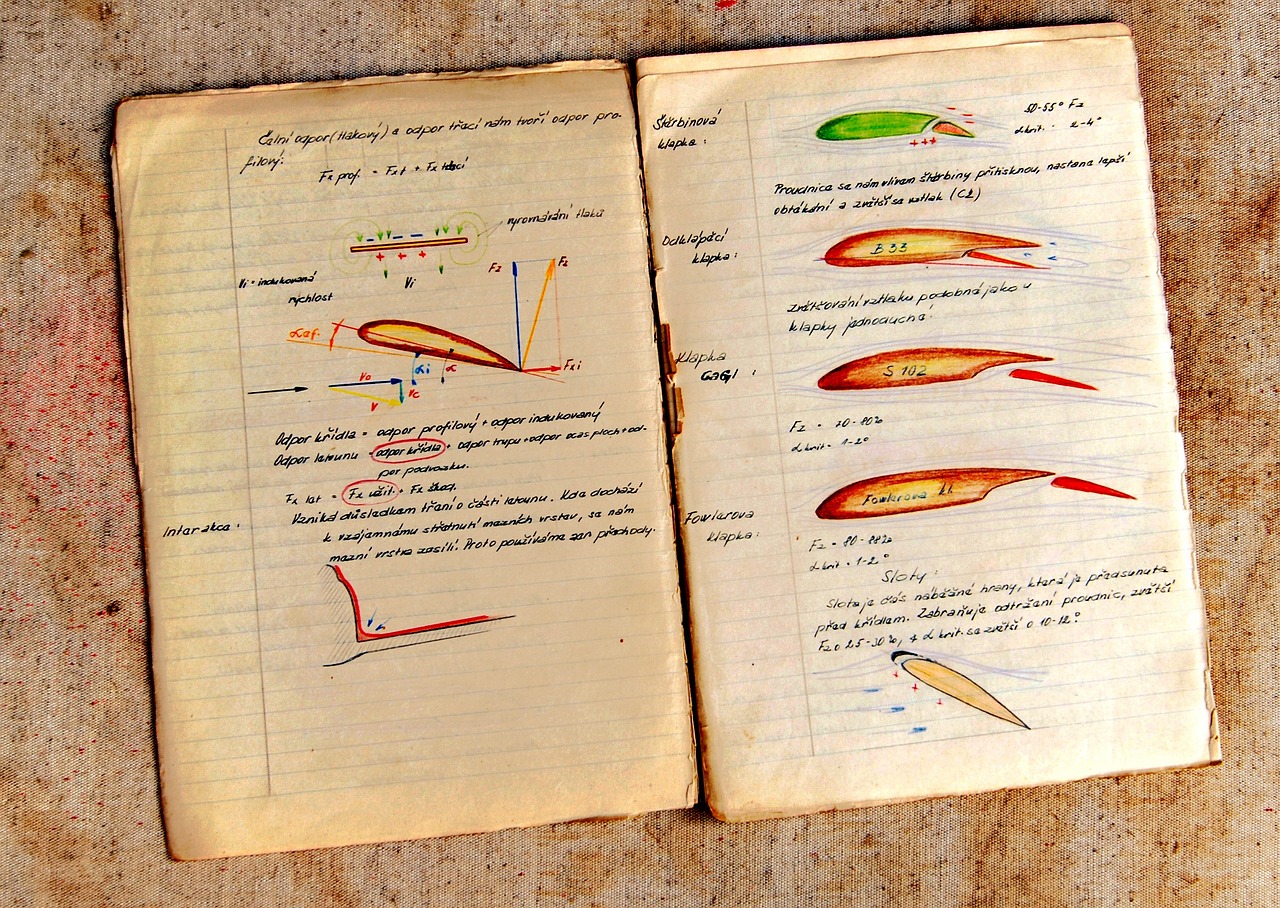 Čelní odpor (tlakový) a odpor třecí nám tvoří odpor pro-
filový:
Fx prof. = Fxt + Fx třecí
vyrovnávání tlaků
Vi = indukovaná
rychlost
Vi
Fz
Fz
αef.
αi
α
Fxi
Vo
Vc
V
Odpor křídla = odpor profilový + odpor indukovaný
Odpor letounu = odpor křídla + odpor trupu + odpor ocas ploch + od-
por podvozku.
Fx let = Fx užit. + Fx škod.
Interakce:
Vzniká důsledkem tření o části letounu. Kde dochází
k vzájemnému střetnutí mezních vrstev, se nám
mezní vrstva zesílí. Proto používáme zan přechody.
Štěrbinová
klapka:
50-55° Fz
αkrit. 2-4°
Proudnice se nám vlivem štěrbiny přitisknou, nastane lepší
obtékání a zvětší se vztlak (Cz)
Odklápěcí
klapka:
B 33
zvětšování vztlaku podobné jako u
klapky jednoduché.
Klapka
GaGl:
S 102
Fz = 70-80%
αkrit = 1-2°
Fowlerova
klapka:
Fowlerova kl.
Fz = 80-88%
αkrit = 1-2°
Sloty:
Slot je část náběžné hrany, která je předsunuta
před křídlem. Zabraňuje odtržení proudnic, zvětší
Fz o 25-30%, α krit. se zvětší o 10-12°